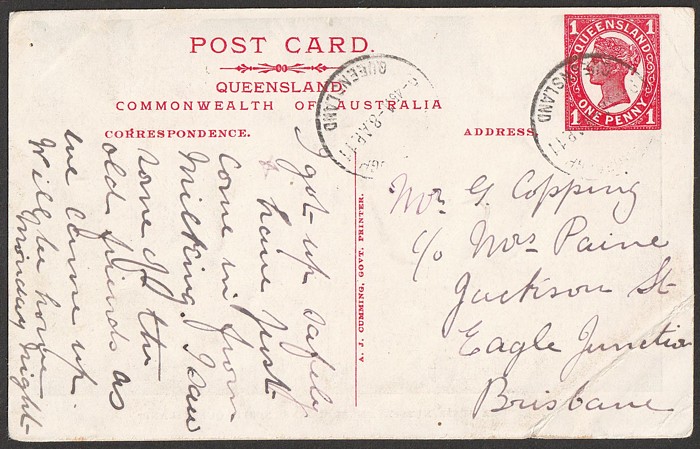 POST CARD.
QUEENSLAND
COMMONWEALTH OF AUSTRALIA
CORRESPONDENCE.
ADDRESS
QUEENSLAND
1 1
ONE PENNY
QUEENSLAND
8 AP 11
A. J. CUMMING, GOVT. PRINTER.
I got up safely
have just
come in from
Milking. I saw
some of the
old friends as
we came up.
Will be home
Monday night
Mr G. Copping
c/o Mrs Paine
Jackson St
Eagle Junction
Brisbane